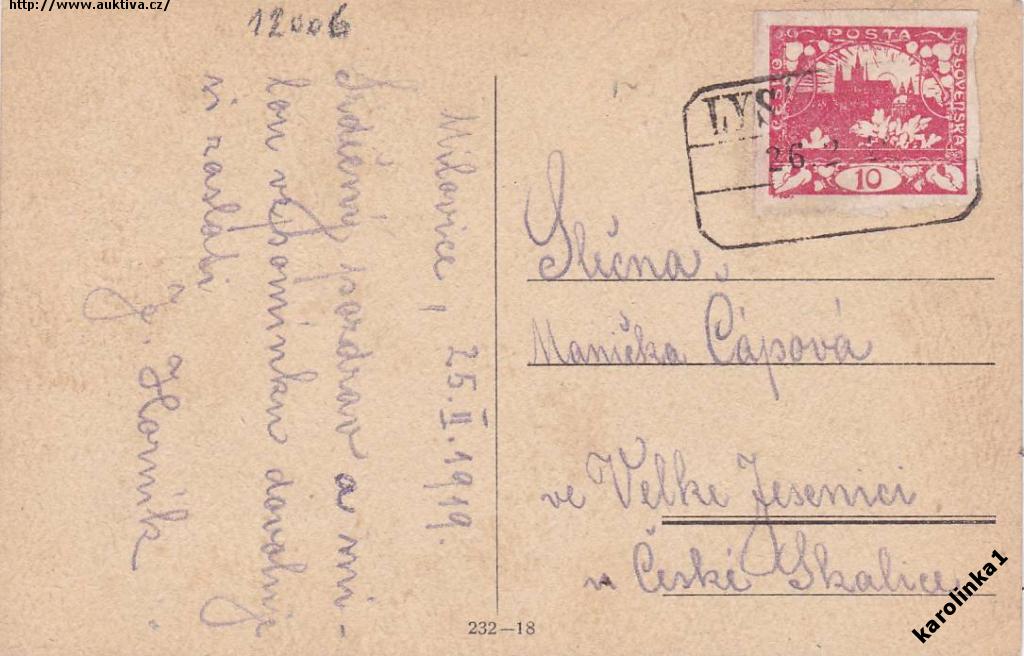 http://www.auktiva.cz/
12006
Milovice, 25.II.1919.
Srdečný pozdrav a mi-
lou vzpomínku dovoluje
si zaslati
J. Horník
POSTA
ČESKO
SLOVENSKA
10
LYS
26. 2
Slečna
Manička Cápová
ve Velké Jesenici
u České Skalice
232—18
karolinka1